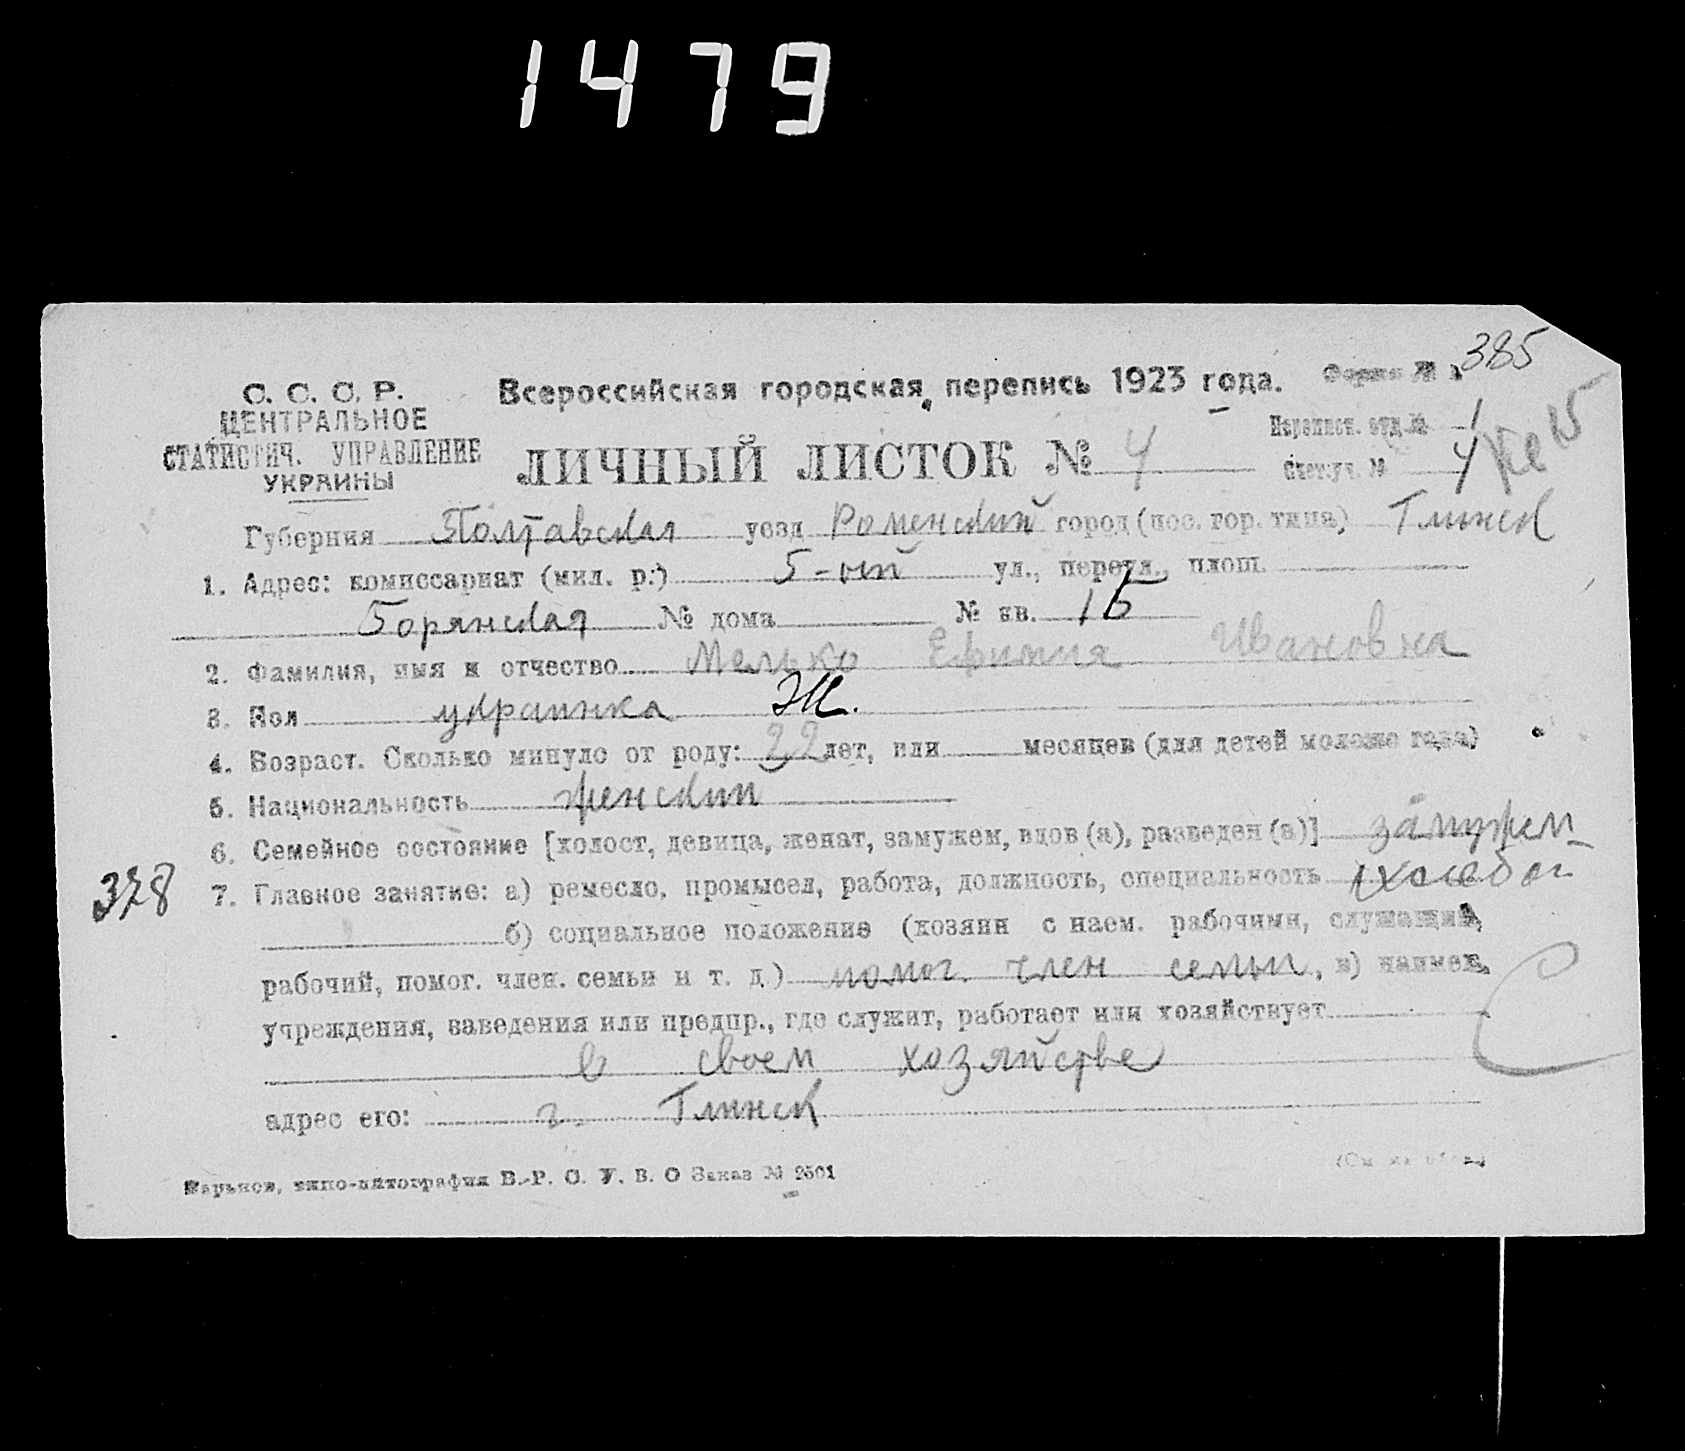 1479
385
С. С. С. Р.
ЦЕНТРАЛЬНОЕ
СТАТИСТИЧ. УПРАВЛЕНИЕ
УКРАИНЫ
Всероссийская городская перепись 1923 года.
Форма №
Переписн. отд. № 1
ЛИЧНЫЙ ЛИСТОК № 4
Счетуч. № 4
Губерния Полтавская уезд Роменский город (пос. гор. типа) Глинск
1. Адрес: комиссариат (мил. р.) 5-ой ул., переул., площ.
Борянская № дома № кв. 15
2. Фамилия, имя и отчество Мелько Ефимия Ивановна
3. Пол украинка Ж.
4. Возраст. Сколько минуло от роду: 22 лет, или месяцев (для детей моложе года)
5. Национальность женский
6. Семейное состояние [холост, девица, женат, замужем, вдов (а), разведен (а)] замужем
328
7. Главное занятие: а) ремесло, промысел, работа, должность, специальность
б) социальное положение (хозяин с наем. рабочими, служащий,
рабочий, помог. член. семьи и т. д.) помог. член семьи, в) наимен.
учреждения, заведения или предпр., где служит, работает или хозяйствует
в своем хозяйстве
адрес его: г. Глинск
Харьков, типо-литография В.-Р. О. У. В. О Заказ № 2501